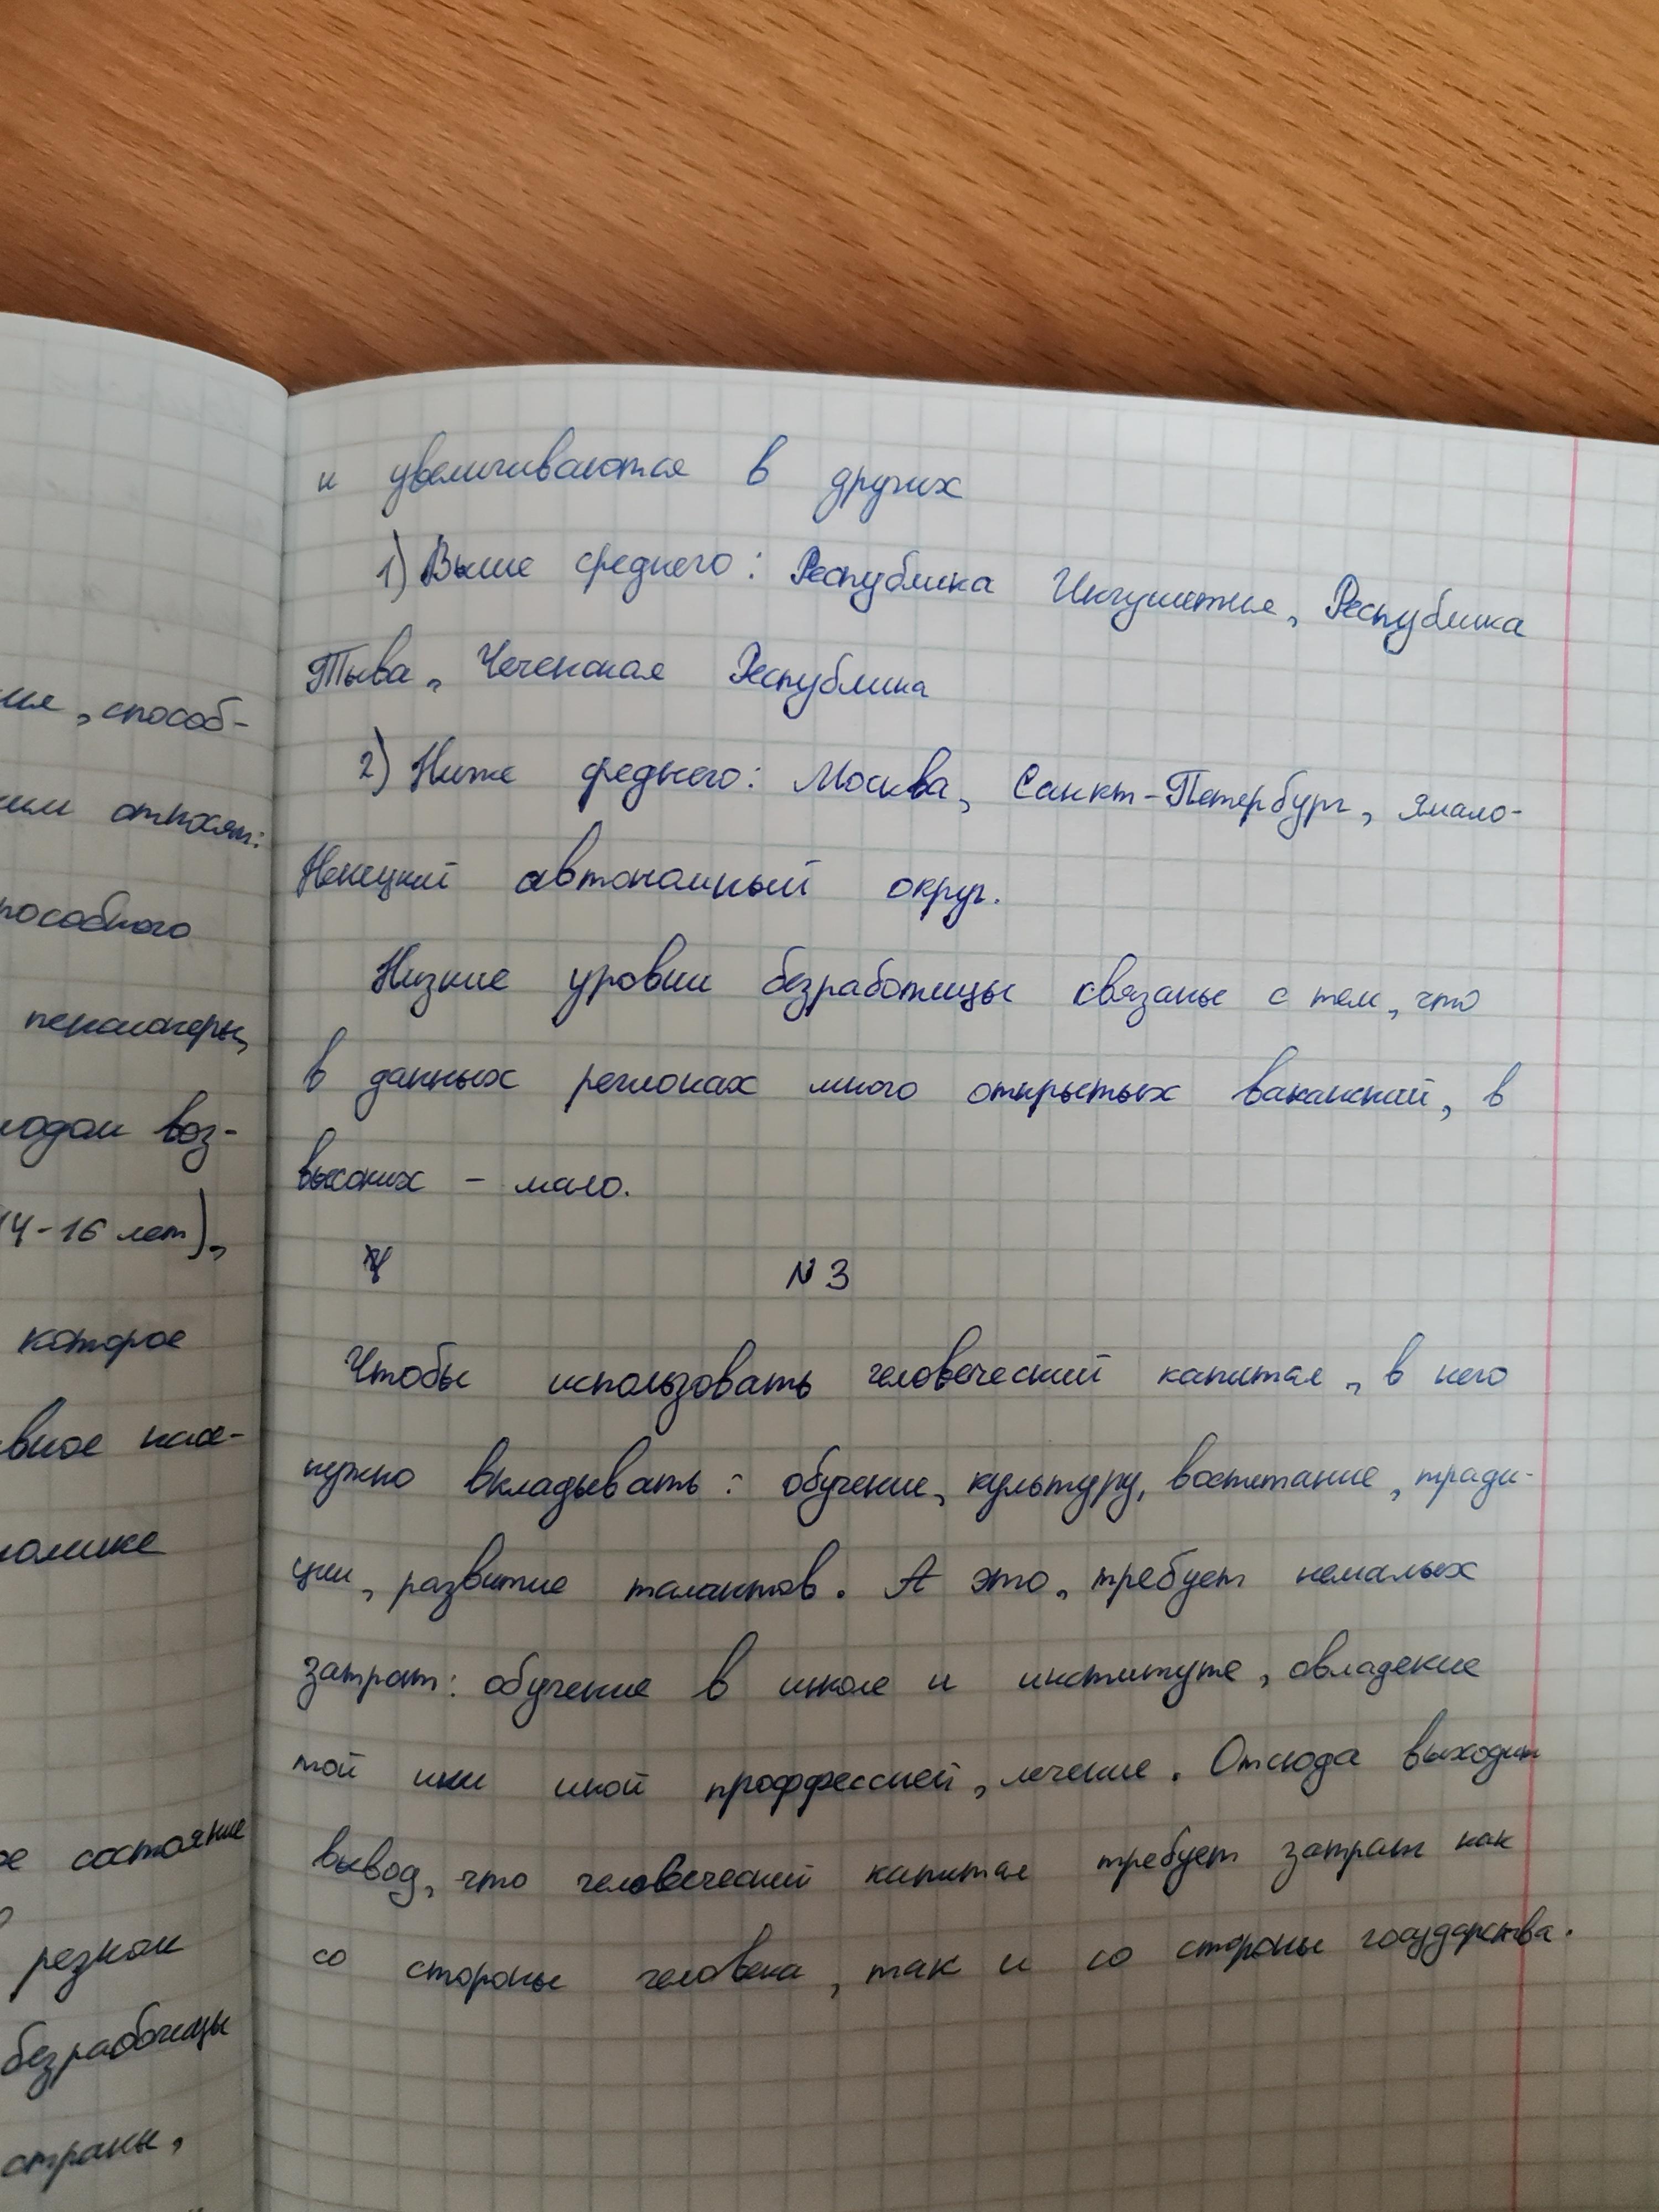 ия, способ-
ним относят:
пособного
пенсионеры,
лодом воз-
14-16 лет),
которое
вное насе-
номике
ое состояние
резком
безработицы
страны,
и увеличиваются в других
1) Выше среднего: Республика Ингушетия, Республика
Тыва, Чеченская Республика
2) Ниже среднего: Москва, Санкт-Петербург, Ямало-
Ненецкий автономный округ.
Низкие уровни безработицы связаны с тем, что
в данных регионах много открытых вакансий, в
высоких - мало.
№3
Чтобы использовать человеческий капитал, в него
нужно вкладывать: обучение, культуру, воспитание, тради-
ции, развитие талантов. А это, требует немалых
затрат: обучение в школе и институте, овладение
той или иной проффессией, лечение. Отсюда выходит
вывод, что человеческий капитал требует затрат как
со стороны человека, так и со стороны государства.